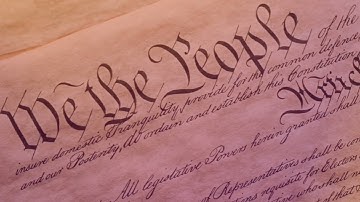 We the People of the
insure domestic Tranquility, provide for the common defence,
and our Posterity, do ordain and establish this Constitution
Article
All legislative Powers herein granted shall
of Representatives shall be com
requisite for Elector
who shall n